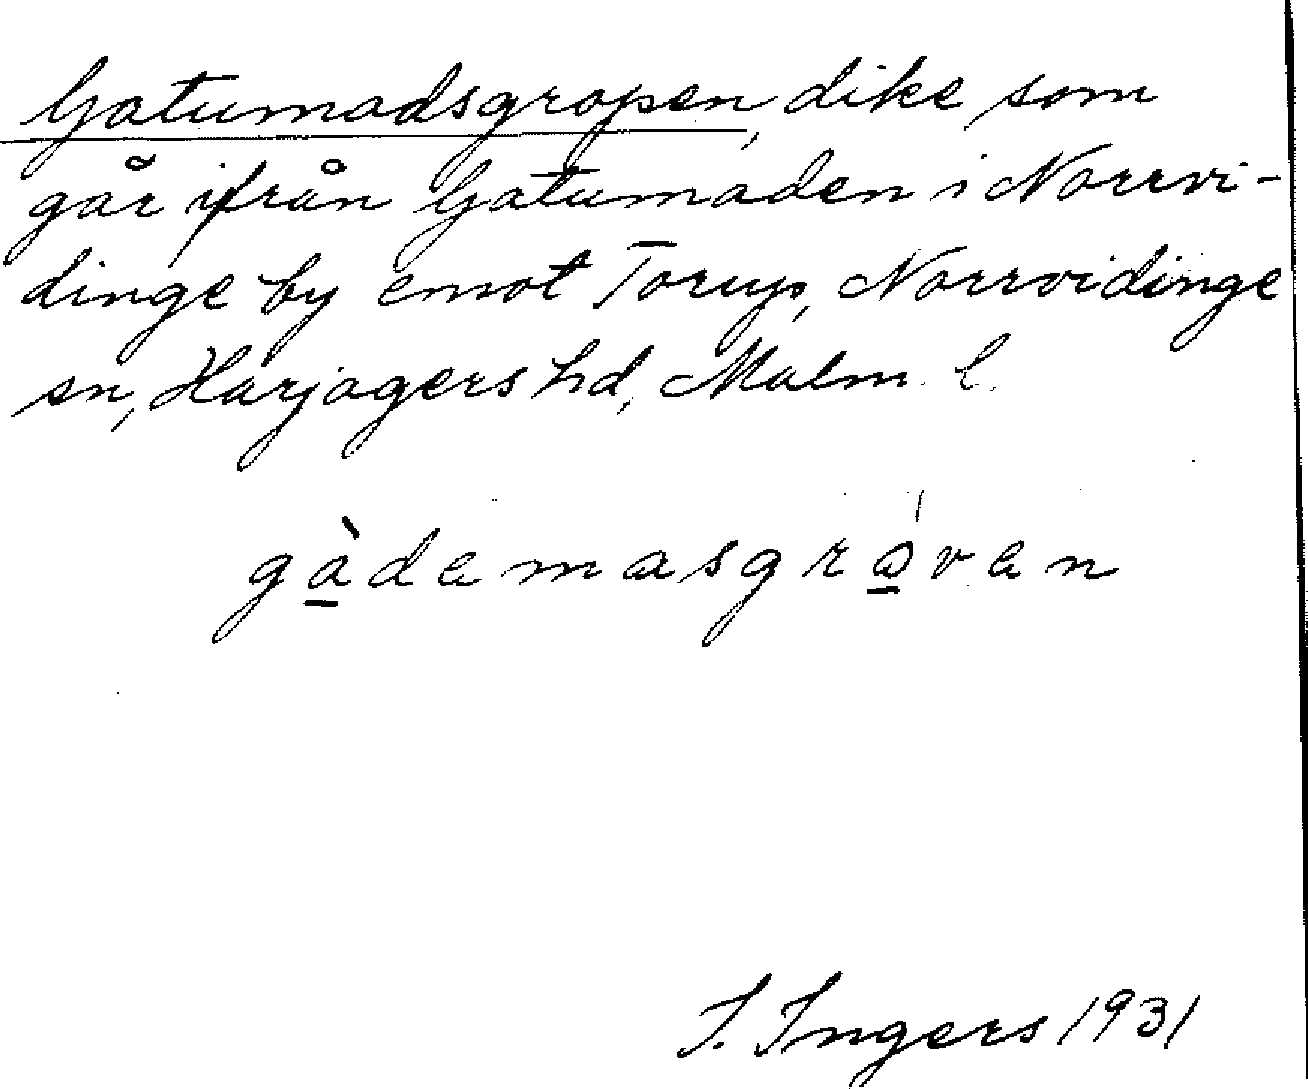 Gatumadsgropen, dike som
går ifrån Gatumaden i Norrvi-
dinge by emot Torup, Norrvidinge
sn, Harjagers hd, Malm. l.
gàdemasgråven
I. Ingers 1931